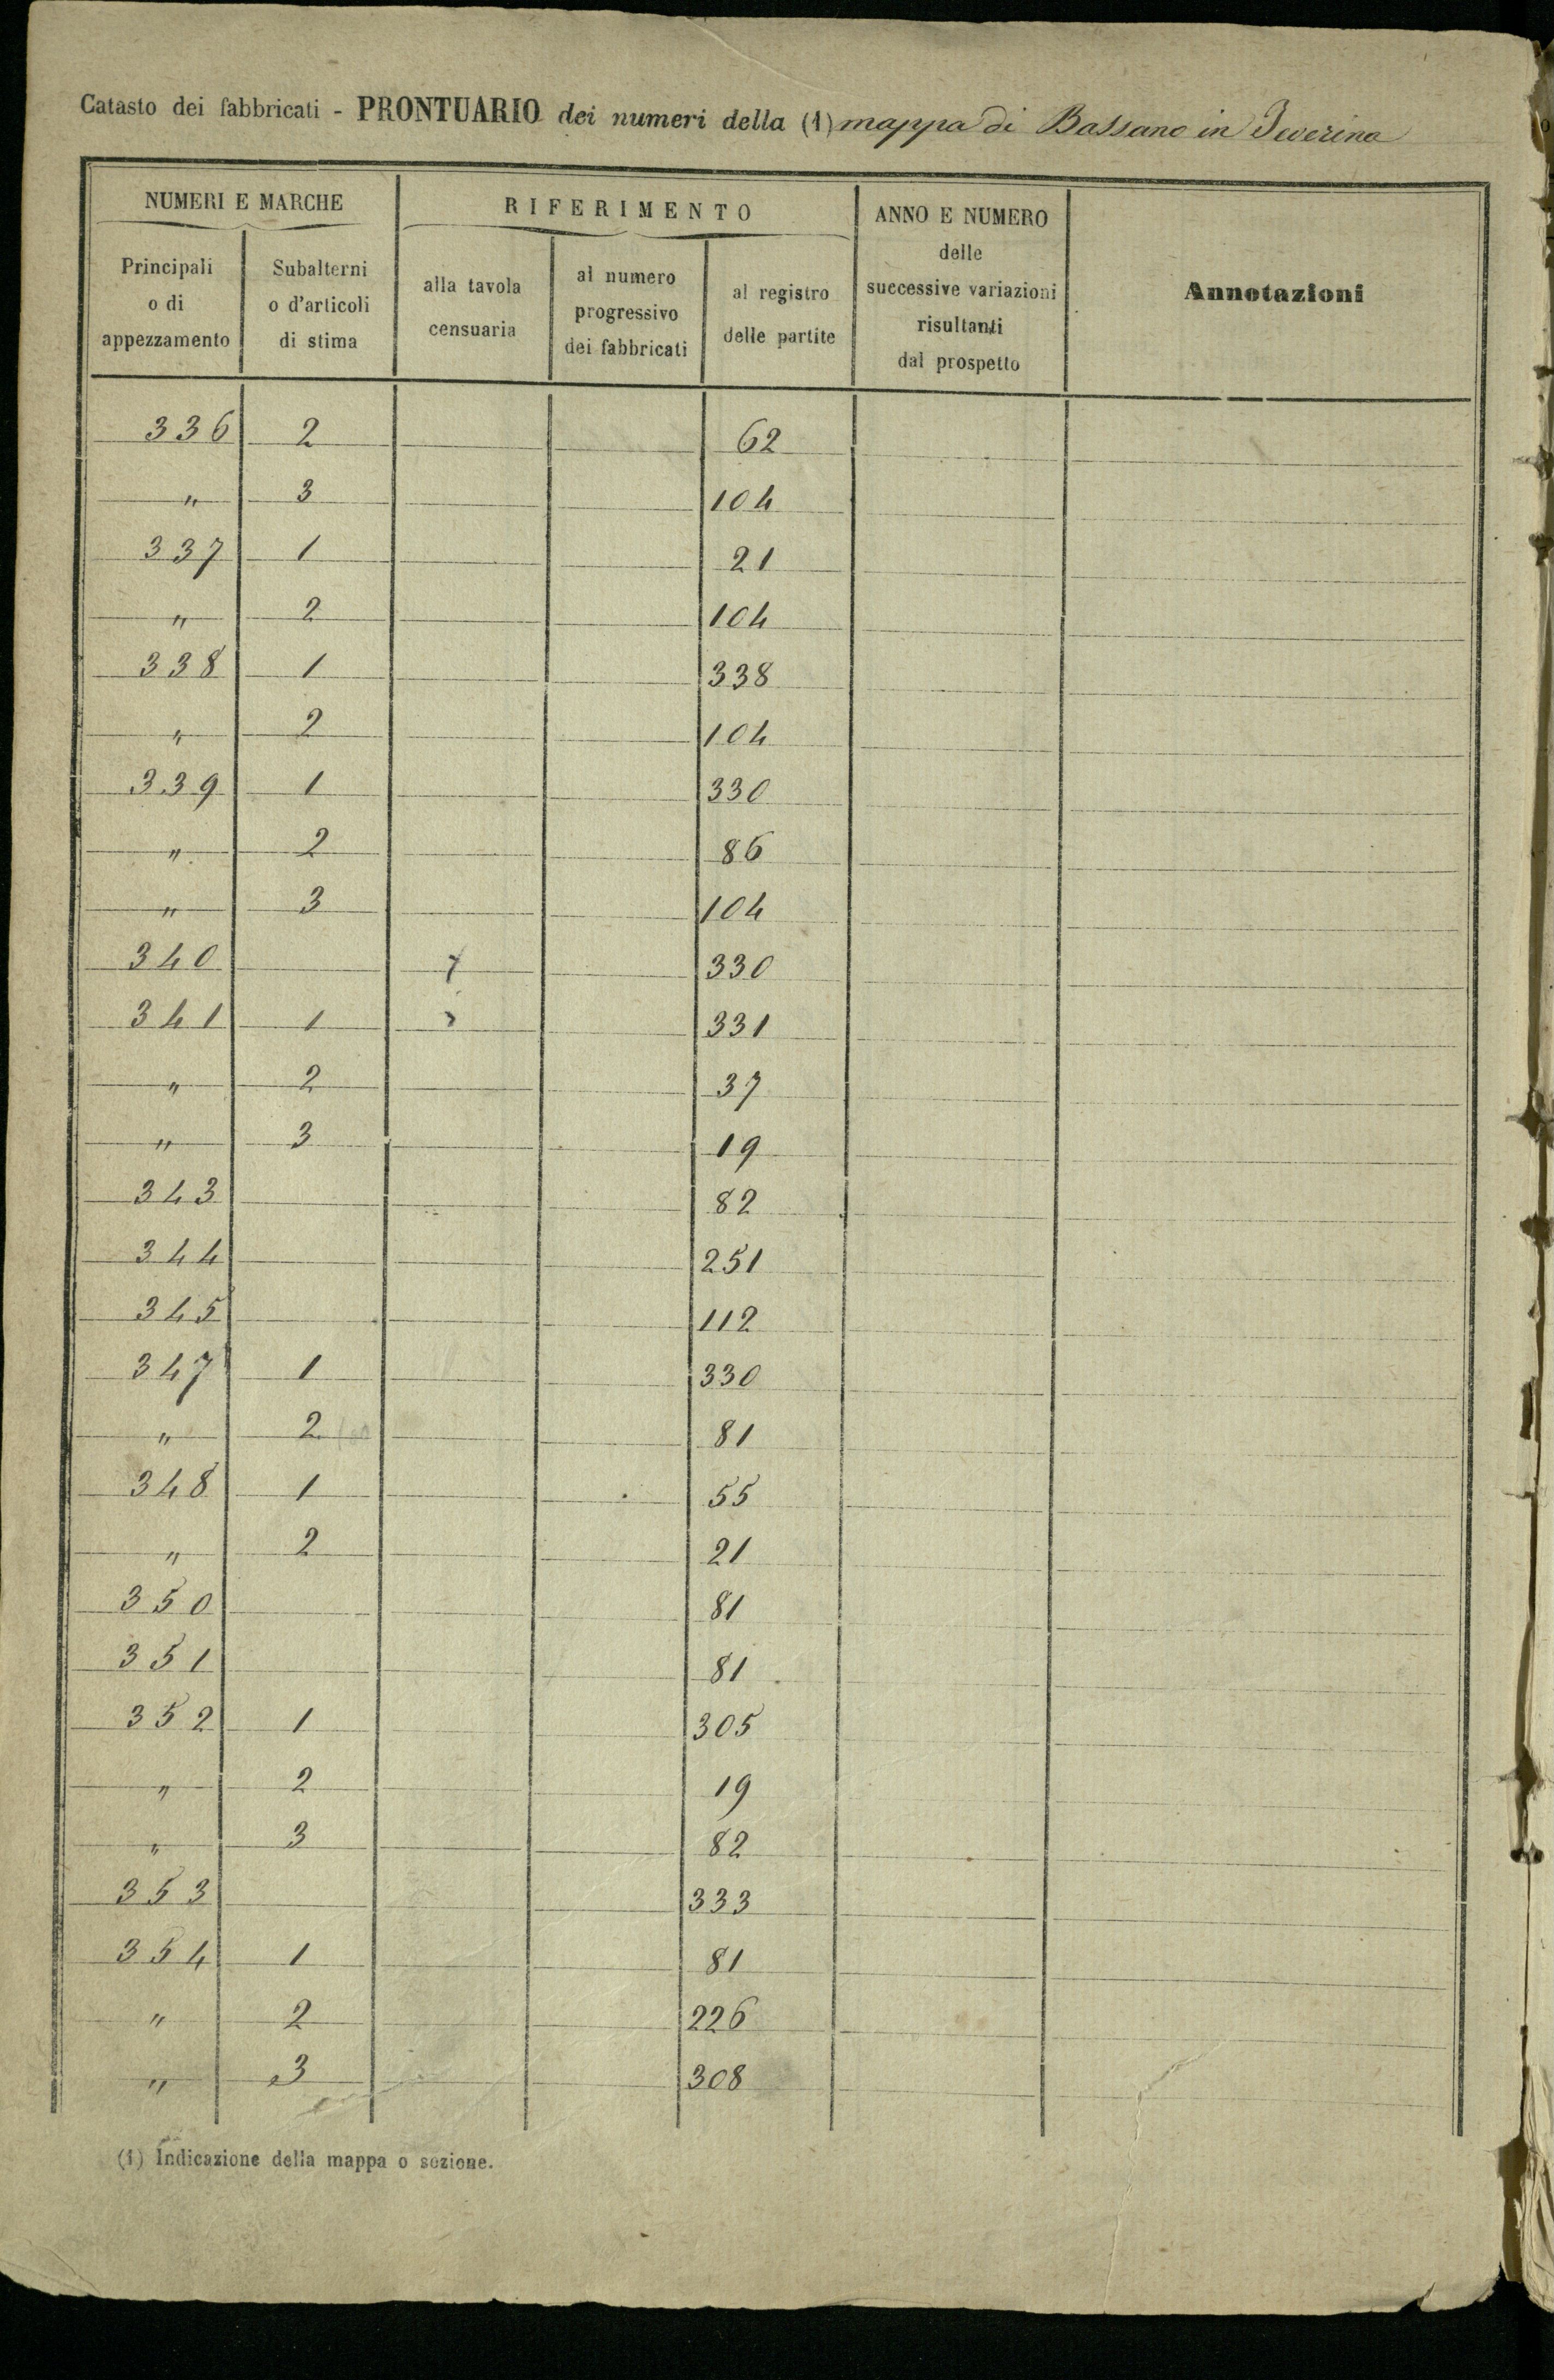 Catasto dei fabbricati - PRONTUARIO dei numeri della (1) mappa di Bassano in Teverina
NUMERI E MARCHE
RIFERIMENTO
ANNO E NUMERO
delle
successive variazioni
risultanti
dal prospetto
Annotazioni
Principali
o di
appezzamento
Subalterni
o d'articoli
di stima
alla tavola
censuaria
al numero
progressivo
dei fabbricati
al registro
delle partite
336 2 62
" 3 104
337 1 21
" 2 104
338 1 338
" 2 104
339 1 330
" 2 86
" 3 104
340 330
341 1 331
" 2 37
" 3 19
343 82
344 251
345 112
347 1 330
" 2 81
348 1 55
" 2 21
350 81
351 81
352 1 305
" 2 19
" 3 82
353 333
354 1 81
" 2 226
" 3 308
(1) Indicazione della mappa o sezione.